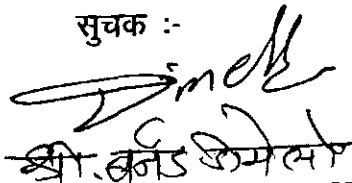 सुचक :-
श्री. बर्नड डिमेलो